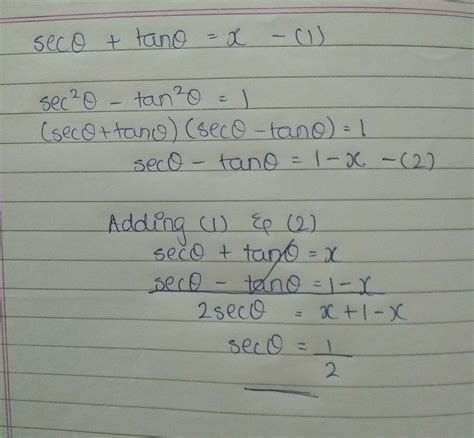 secθ + tanθ = x - (1)
sec²θ - tan²θ = 1
(secθ+tanθ) (secθ-tanθ) = 1
secθ - tanθ = 1-x - (2)
Adding (1) & (2)
secθ + tanθ = x
secθ - tanθ = 1-x
2secθ = x+1-x
secθ = 1
2